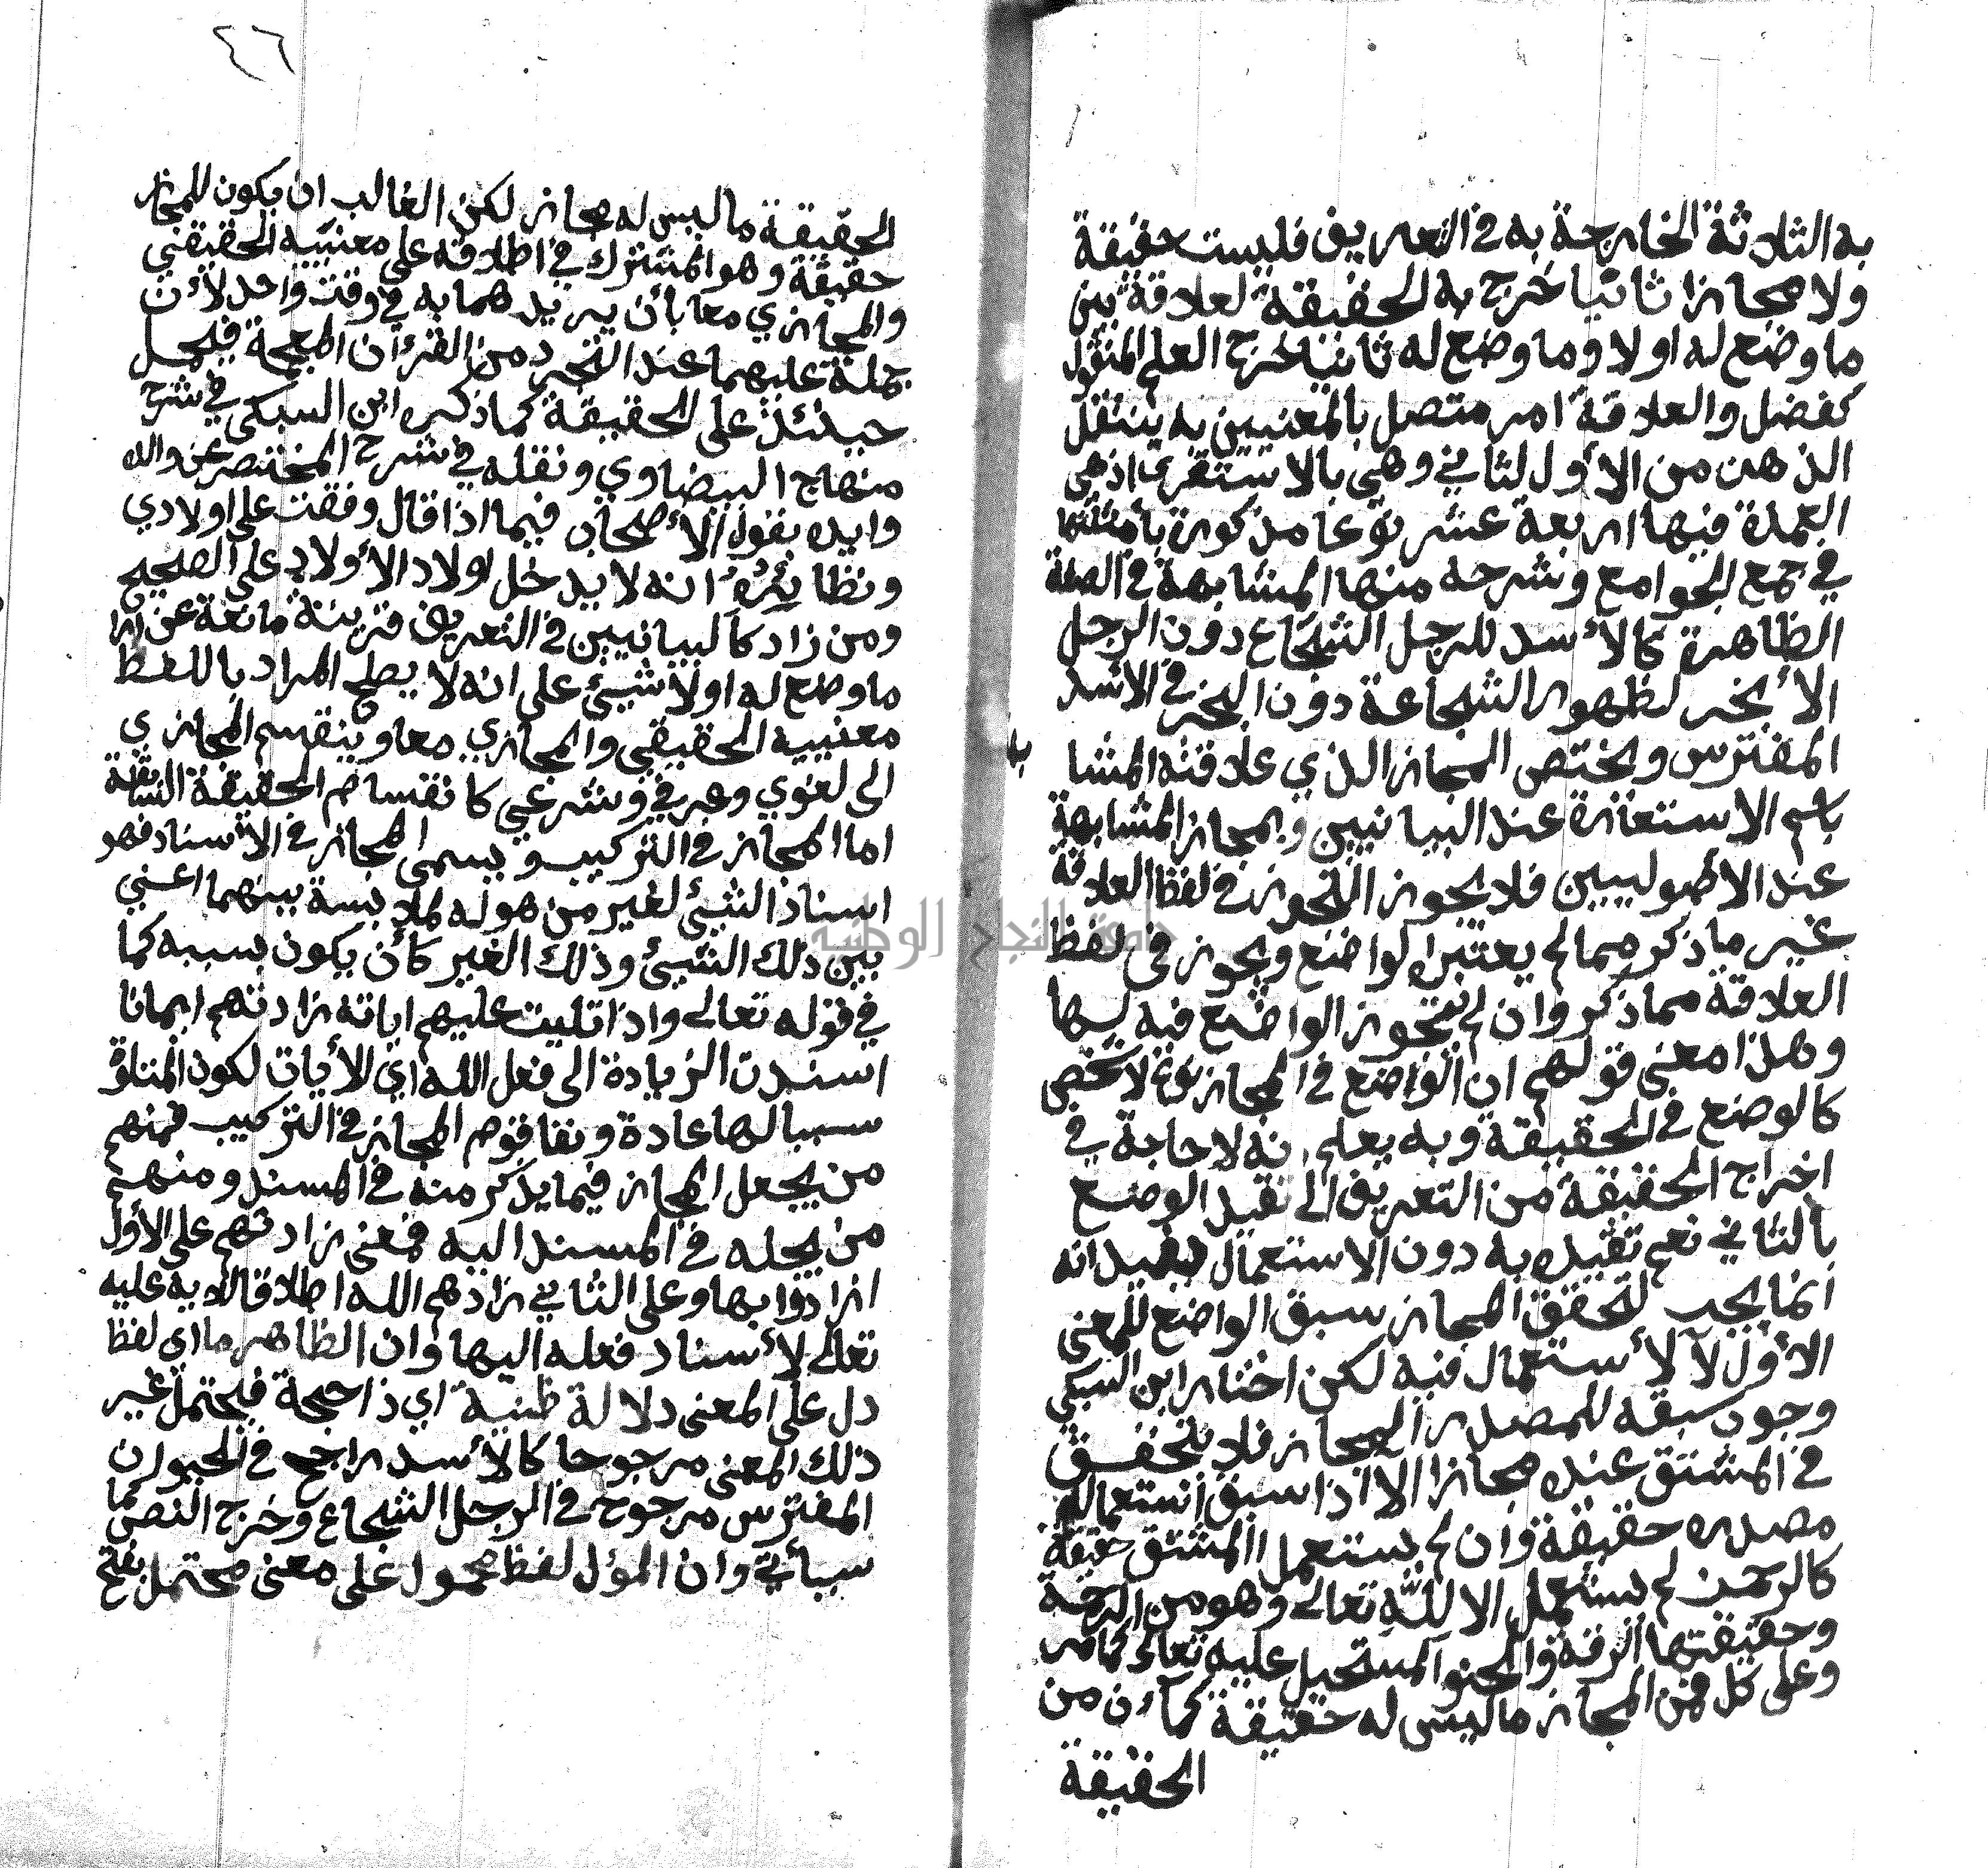 به الثلاثة الخارجة به في التعريف فليست حقيقة
ولا مجازا ثانيا خرج به الحقيقة لعلاقة بين
ما وضع له اولا وما وضع له ثانيا خرج العلم المنقول
كفضل والعلاقة امر متصل بالمعنيين به ينتقل
الذهن من الأول للثاني وهي بالاستقرى اذهي
العمدة فيها اربعة عشر نوعا مذكورة بأمثلتها
في جمع الجوامع وشرحه منها المشابهة في الصفة
الظاهرة كالأسد للرجل الشجاع دون الرجل
الأبخر لظهور الشجاعة دون البخر في الاسد
المفترس ويختص المجاز الذي علاقته المشا بها
باسم الاستعارة عند البيانيين وبمجاز المشابهة
عند الأصوليين فلا يجوز التجوز في لفظ العلاقة
غير ما ذكر مما لم يعتبر الواضع ويجوز في لفظ
العلاقة مما ذكر وان لم يتجوز الواضع فيه لسها
وهذا معنى قولهم ان الواضع في المجاز نوعا لا شخص
كالوضع في الحقيقة وبه يعلم انه لا حاجة في
اخراج الحقيقة من التعريف الى تقيد الوضع
بالثاني نعم تقييده به دون الاستعمال ليفيد انه
انما يجب لتحقق المجاز سبق الواضع للمعنى
الأول لا لأستعمال فيه لكن اختار ابن السبكي
وجوب سبقه للمصدر المجاز فلا يتحقق
في المشتق عنده مجازا الا اذا سبق استعماله
مصدره حقيقة وان لم يستعمل المشتق حقيقة
كالرحمن لم يستعمل الا لله تعالى وهو من الرحمة
وحقيقتها الرقة والحنو المستحيل عليه تعالى كما مر
وعلى كل فمن المجاز ما ليس له حقيقة كما أن من
الحقيقة
٤٦
الحقيقة ما ليس له مجاز لكن الغالب ان يكون للمجاز
حقيقة وهو المشترك في اطلاقه على معنييه الحقيقي
والمجازي معا بأن يريد هما به في وقت واحد لأن
حمله عليهما عند التجرد من القرأن المعجمة فيحمل
حينئذ على الحقيقة كما ذكره ابن السبكي في شرح
منهاج البيضاوي ونقله في شرح المختصر عن والده
وايده بقول الأصحاب فيما اذا قال وقفت على اولادي
ونظائره انه لا يدخل اولاد الأولاد على الصحيح
ومن زاد كالبيانيين في التعريف قرينة مانعة عن
ما وضع له اولا شيئ على انه لا يصلح المراد باللفظ
معنييه الحقيقي والمجازي معا وينقسم المجازي
الى لغوي وعرفي وشرعي كانقسام الحقيقة السابقة
اما المجاز في التركيب ويسمى المجاز في الأسناد فهو
اسناد الشيئ لغير من هو له لملابسة بينهما اعني
بين ذلك الشيئ وذلك الغير كأن يكون بسببه كما
في قوله تعالى واذا تليت عليهم اياته زادتهم ايمانا
اسندت الزيادة الى فعل الله اي للأيات لكون المتلو
سببا لها عادة ونفا قوم المجاز في التركيب فمنهم
من يجعل المجاز فيما يذكر منه في المسند ومنهم
من يجله في المسند اليه فمعنى زادتهم على الأول
ازادوا بها وعلى الثاني زادهم الله اطلاقا للايه عليه
تعالى لأسناد فعله اليها وان الظاهر ما اي لفظ
دل على المعنى دلالة ظنية اي ذا حجة فيحتمل غير
ذلك المعنى مرجوحا كالأسد راجح في الحيوان
المفترس مرجوح في الرجل الشجاع وخرج النص كما
سيأتي وان المؤل لفظ محمول على معنى محتمل بفتح